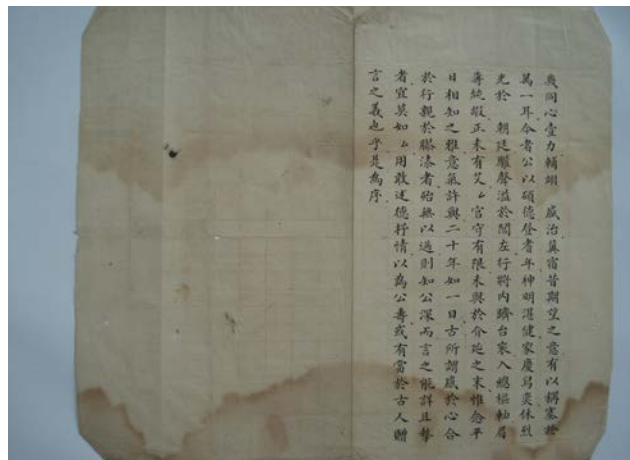 幾同心壹力輔翊 盛治冀宿昔期望之意有以稱塞於
萬一耳今者公以碩德登耆年神明湛健家慶舄奕休烈
光於 朝廷驩聲溢於閭左行將內躋台寀入總樞軸眉
壽純嘏正未有艾厶官守有限未與於介筵之末惟念平
日相知之雅意氣許與二十年如一日古所謂感於心合
於行親於膠漆者殆無以過則知公深而言之能詳且摯
者宜莫如厶用敢述德抒情以為公壽或有當於古人贈
言之義也乎是為序